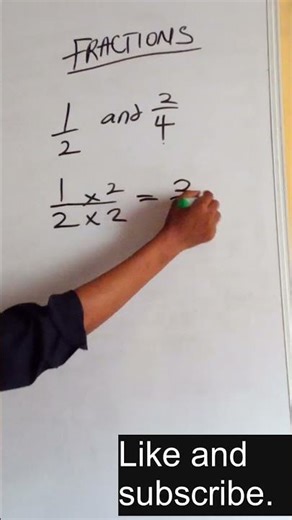 FRACTIONS
1/2 and 2/4
1 x 2 / 2 x 2 = 2
Like and
subscribe.